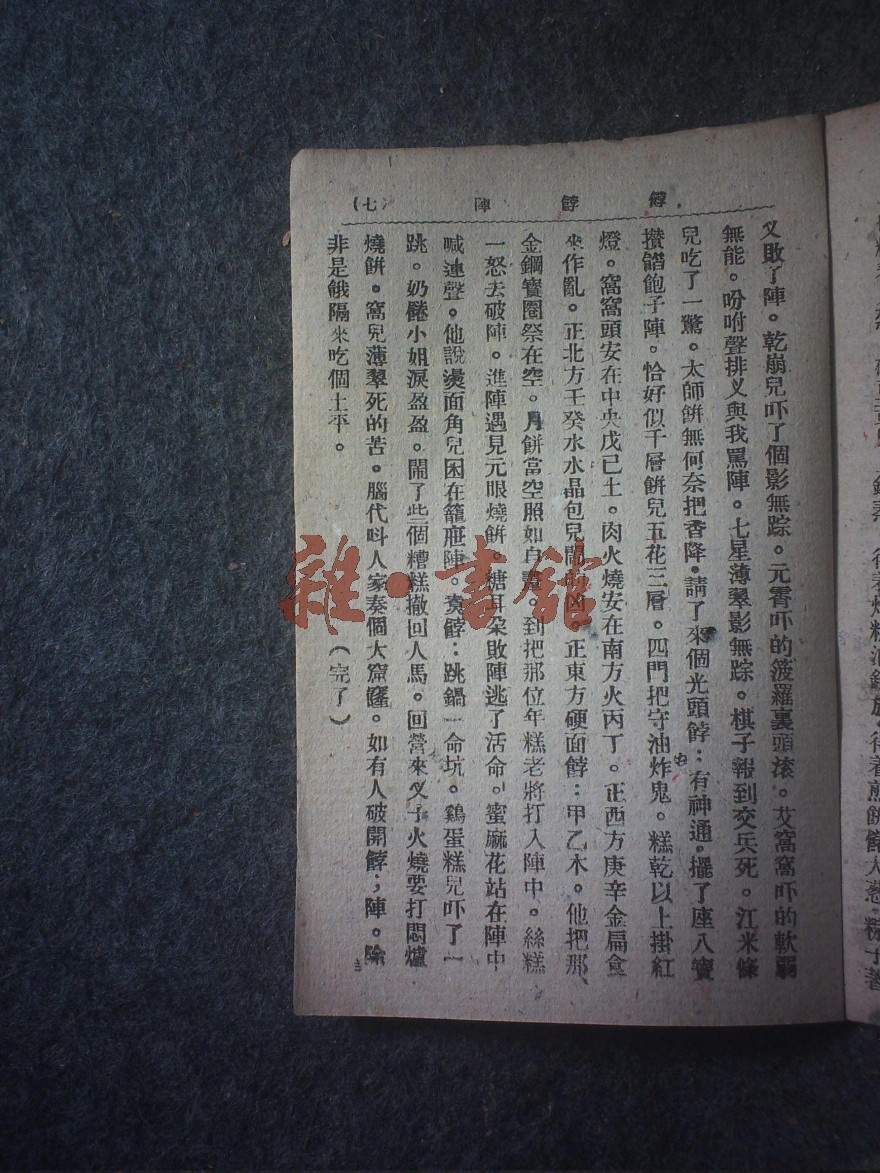 餑餑陣 (七)
叉敗了陣。乾崩兒吓了個影無踪。元霄吓的菠羅裏頭滚。艾窩窩吓的軟弱
無能。吩咐聲排叉與我罵陣。七星薄翠影無踪。棋子報到交兵死。江米條
兒吃了一驚。太師餅無何奈把香降。請了來個光頭餑：有神通。擺了座八寶
攅饀飽子陣。恰好似千層餅兒五花三層。四門把守油炸鬼。糕乾以上掛紅
燈。窩窩頭安在中央戊己土。肉火燒安在南方火丙丁。正西方庚辛金扁食
來作亂。正北方壬癸水水晶包兒鬧的凶。正東方硬面餑：甲乙木。他把那
金鋼寶圈祭在空。月餅當空照如白晝。到把那位年糕老將打入陣中。絲糕
一怒去破陣。進陣遇見元眼燒餅。糖耳朵敗陣逃了活命。蜜麻花站在陣中
喊連聲。他說燙面角兒困在籠屜陣。煑餑：跳鍋一命坑。鷄蛋糕兒吓了一
跳。奶餑小姐淚盈盈。鬧了些個糟糕撤回人馬。回營來叉子火燒要打悶爐
燒餅。窩兒薄翠死的苦。腦代呌人家奏個大窟窿。如有人破開餑：陣。除
非是餓隔來吃個土平。 (完了)
雜·書館